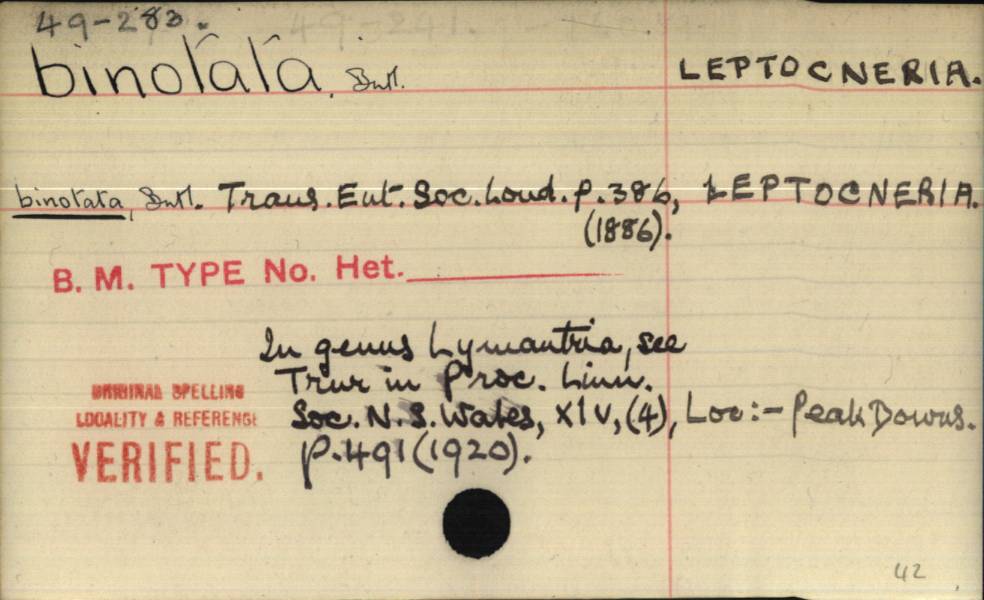 49-283.
binotata, Butl. LEPTOCNERIA.
binotata, Butl. Trans. Ent. Soc. Lond. p. 386, LEPTOCNERIA.
(1886).
B. M. TYPE No. Het.
In genus Lymantria, see
Turr in Proc. Linn.
Soc. N. S. Wales, XLV, (4), Loc:- Peak Downs.
p. 491 (1920).
ORIGINAL SPELLING
LOCALITY & REFERENCE
VERIFIED.
42